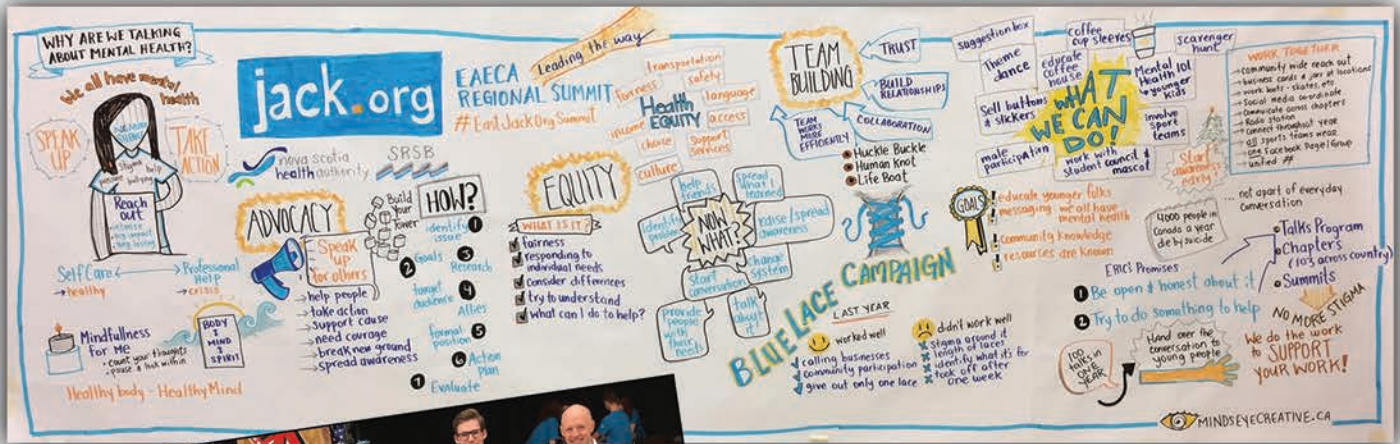 WHY ARE WE TALKING
ABOUT MENTAL HEALTH?
We all have mental
health
SPEAK
UP
TAKE
ACTION
NO MORE
SILENCE
stigma help
bullying
Reach
out
intense
big impact
long lasting
Self Care
Professional
Help
→ healthy
→ crisis
Mindfullness
for me
• count your thoughts
• pause & look within
BODY
&
MIND
&
SPIRIT
Healthy body - Healthy Mind
jack.org
nova scotia
health authority
SRSB
EAECA
REGIONAL SUMMIT
#EastJackOrgSummit
Leading the way
ADVOCACY
Speak
up
for others
→ help people
→ take action
→ support cause
→ need courage
→ break new ground
→ spread awareness
Build
your
tower
HOW?
1 identify
issue
2 Goals
3 Research
target
audience
4 Allies
formal
position
5
6 Action
plan
7 Evaluate
transportation
fairness
safety
Health
EQUITY
language
income
access
choice
support
services
culture
EQUITY
WHAT IS IT?
fairness
responding to
individual needs
consider differences
try to understand
what can I do to help?
NOW
WHAT?
help
friends
spread
what I
learned
identify
problem
raise/spread
awareness
change
system
start
conversation
talk
about
it!
provide
people
with
their
needs
TEAM
BUILDING
TRUST
BUILD
RELATIONSHIPS
COLLABORATION
TEAM
WORKS
MORE
EFFICIENTLY
• Huckle Buckle
• Human Knot
• Life Boat
BLUE LACE CAMPAIGN
LAST YEAR
worked well
✓ calling businesses
✓ community participation
✓ give out only one lace
didn't work well
x Stigma around it
x length of laces
x identify what it's for
x took off after
one week
WHAT
WE CAN
DO!
suggestion box
coffee
cup sleeves
scavenger
hunt
Theme
dance
educate
coffee
house
Mental 101
Health →
younger
kids
Sell buttons
& stickers
involve
sport
teams
male
participation
work with
student council &
mascot
Start
awareness
early!
WORK TOGETHER
→ community wide reach out
→ business cards & jars at locations
→ work boots - skates, etc
→ Social media co-ordinate
→ Communicate across chapters
→ Radio station
→ connect throughout year
→ all sports teams wear
→ one Facebook Page/Group
→ unified #
GOALS
! educate younger folks
! messaging - we all have
mental health
! community knowledge
! resources are known
4000 people in
Canada a year
die by suicide
... not apart of everyday
conversation
ERIC's Promises
1 Be open & honest about it
2 Try to do something to help
• Talks Program
• Chapter's
(103 across country)
• Summits
NO MORE STIGMA
100
talks in
ONE
YEAR
Hand over the
conversation to
young people
We do the work
to SUPPORT
YOUR WORK!
MINDSEYECREATIVE.CA